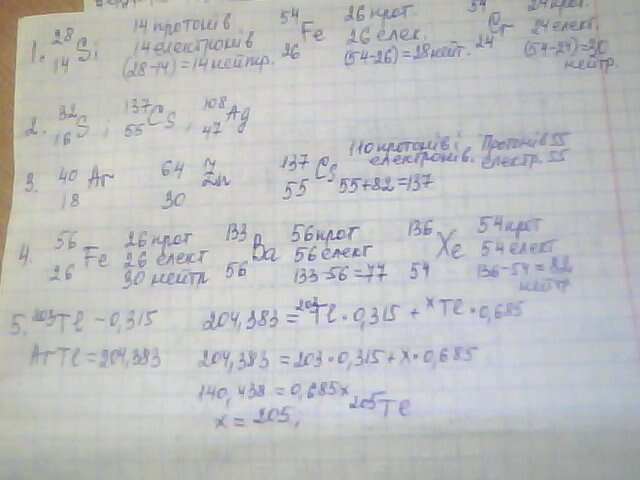 28 14 протонів 54 26 прот 54 24 прот.
1. Si; 14 електронів Fe 26 елек. Cr 24 елект.
14 (28-14)=14 нейтр. 26 (54-26)=28 нейт. 24 (54-24)=30 нейтр.
2. 32 16 S; 137 55 Cs; 108 47 Ag
3. 40 18 Ar 64 30 Zn 137 55 Cs 110 протонів і електронів. Протонів 55 електр. 55
55+82=137
4. 56 26 Fe 26 прот 133 56 Ba 56 прот 136 54 Xe 54 прот
26 елект 56 елект 54 елект
30 нейтр 133-56=77 136-54=82 нейтр
5. 203Tl - 0,315 204,383 = 203Tl · 0,315 + xTl · 0,685
ArTl = 204,383 204,383 = 203 · 0,315 + x · 0,685
140,438 = 0,685x
x = 205, 205Tl